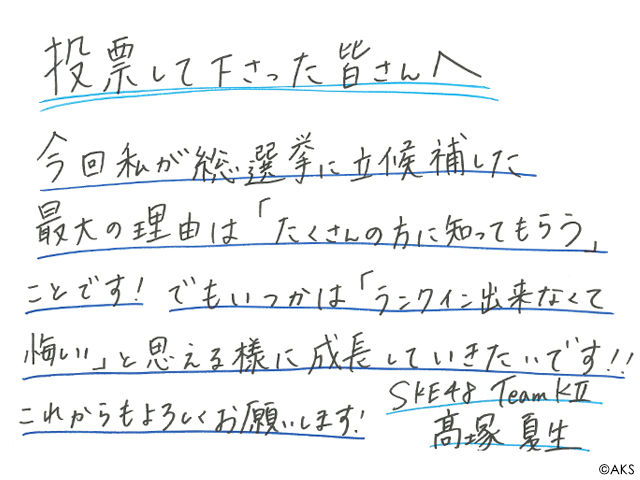 投票して下さった皆さんへ
今回私が総選挙に立候補した
最大の理由は「たくさんの方に知ってもらう」
ことです! でもいつかは「ランクイン出来なくて
悔しい」と思える様に成長していきたいです!!
これからもよろしくお願いします!
SKE48 TeamKⅡ
髙塚 夏生
©AKS